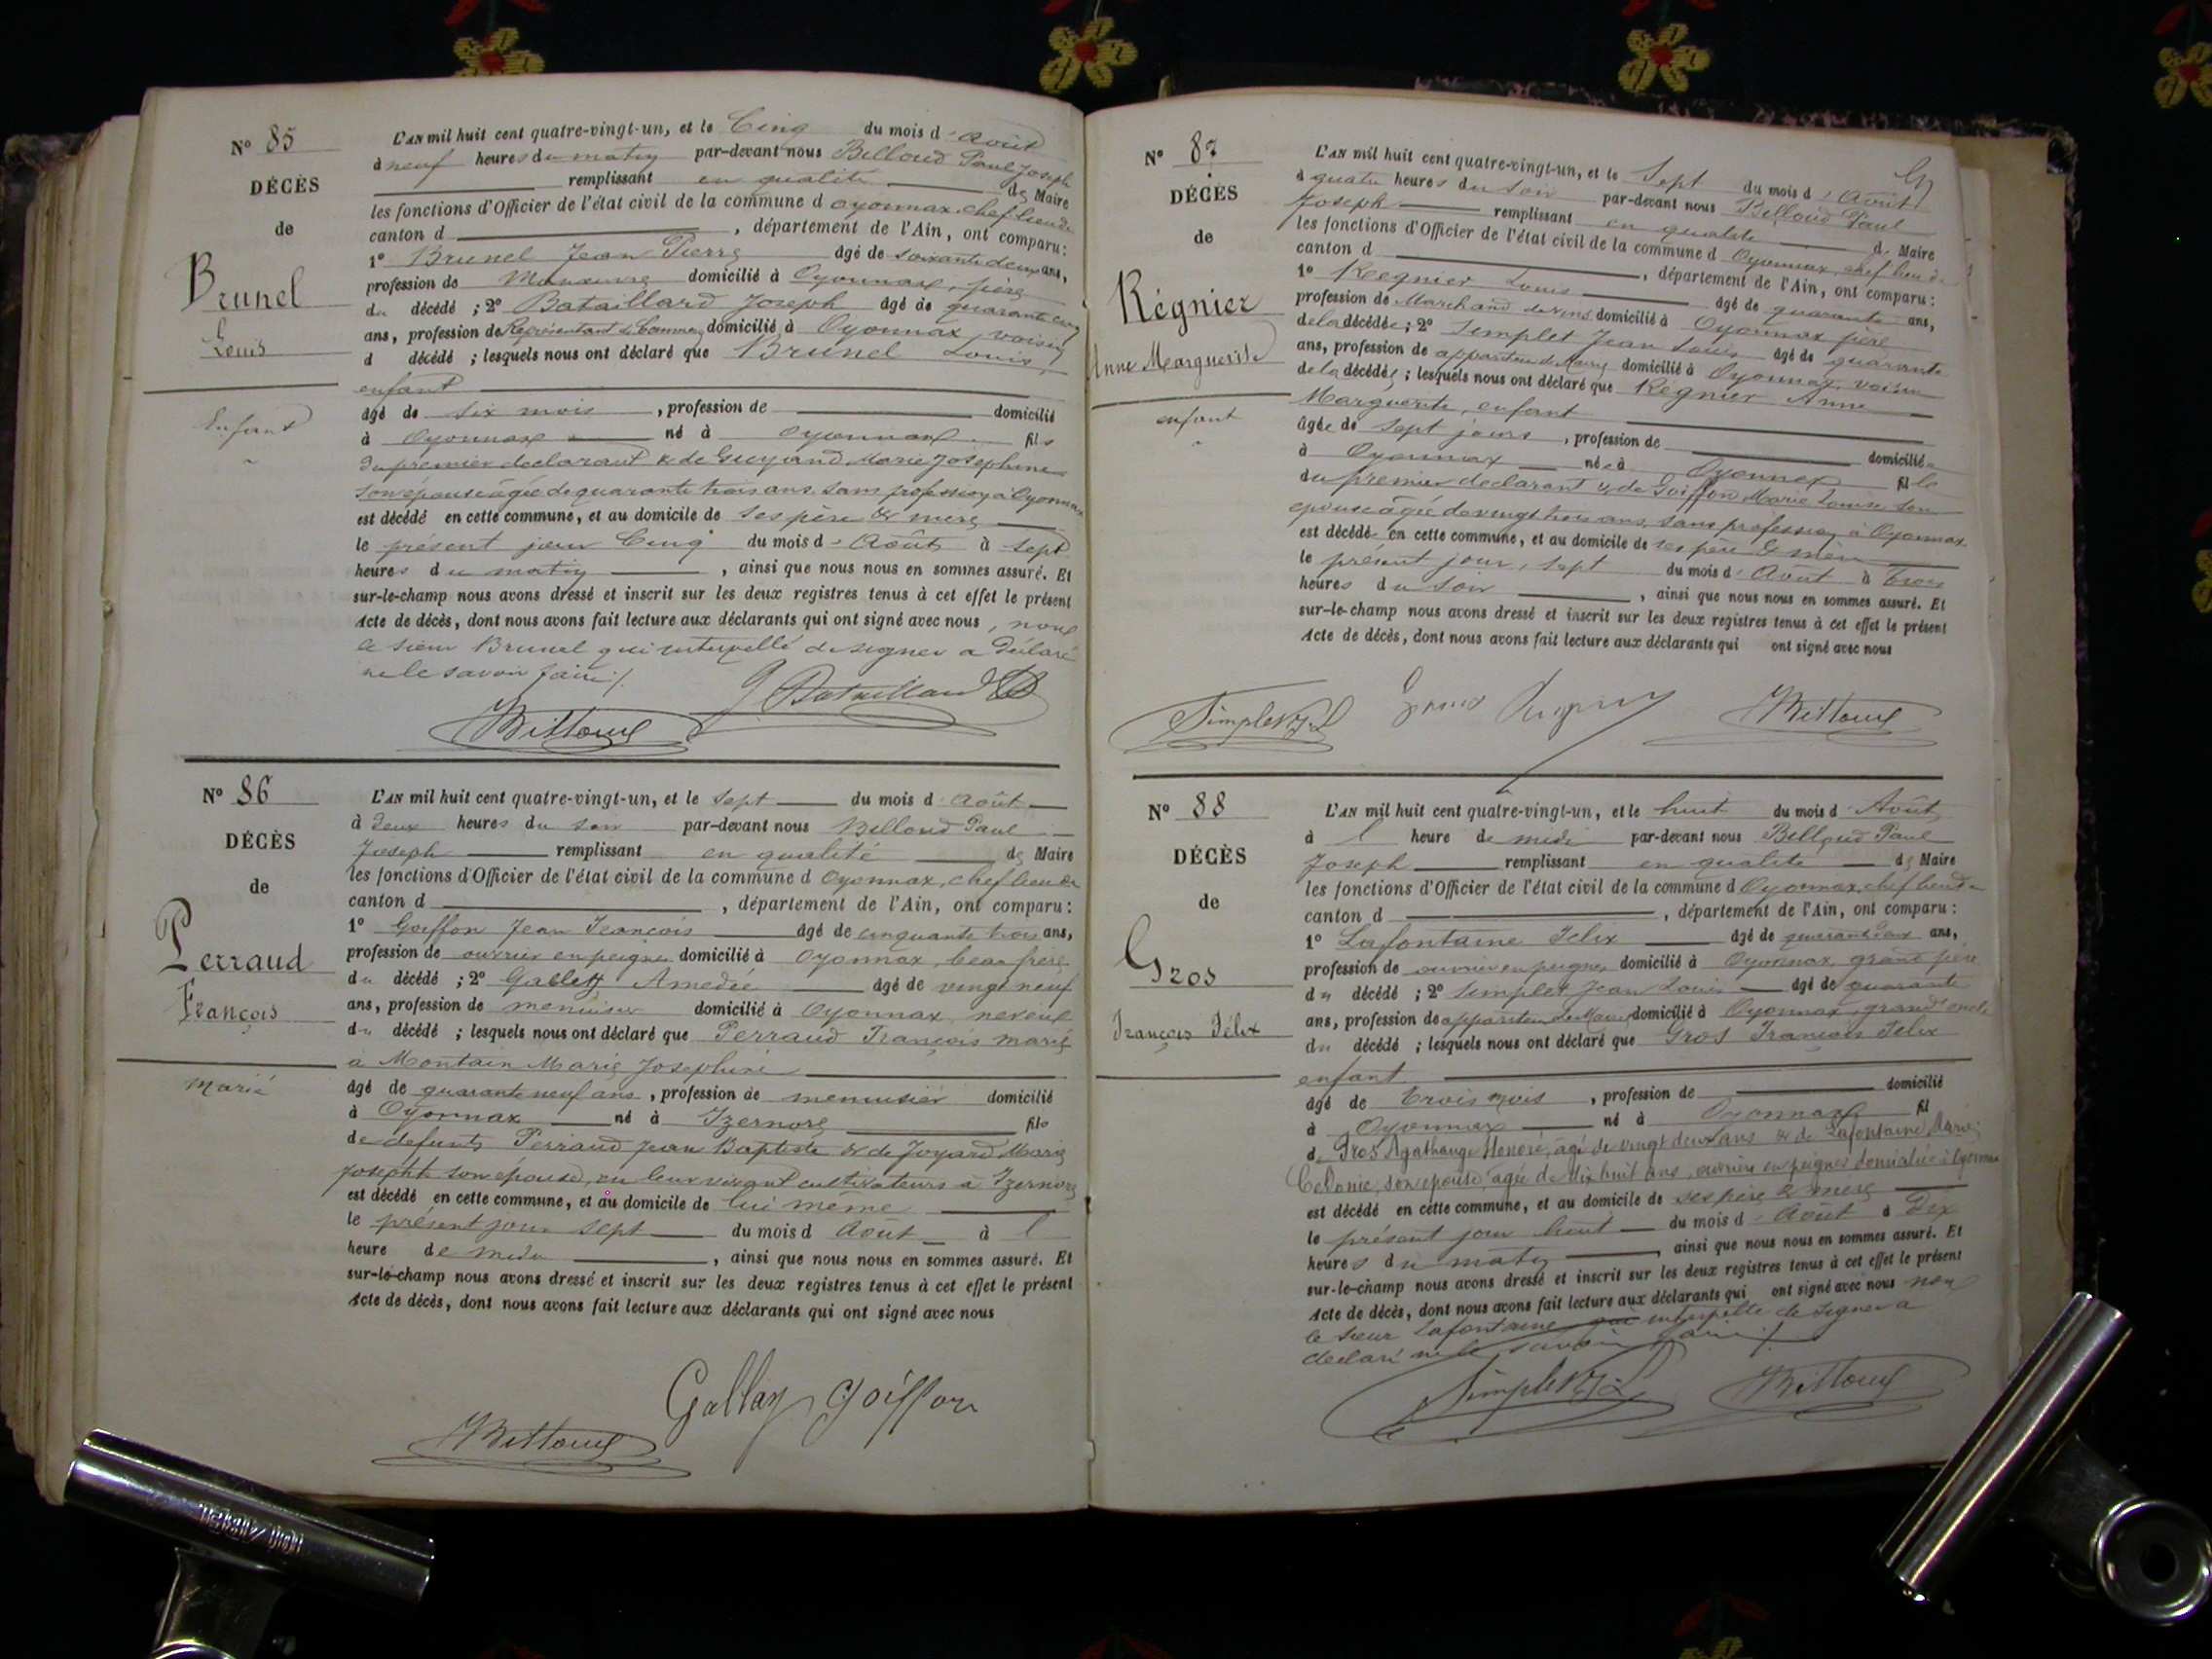 N° 85
DÉCÈS
de
Brunel
Louis
Enfant
L'AN mil huit cent quatre-vingt-un, et le Cinq du mois d'Août
à neuf heures du matin par-devant nous Belloud Paul Joseph
remplissant en qualité de Maire
les fonctions d'Officier de l'état civil de la commune d Oyonnax, chef lieu de
canton d , département de l'Ain, ont comparu :
1° Brunel Jean Pierre âgé de soixante deux ans,
profession de Manœuvre domicilié à Oyonnax, père
du décédé ; 2° Bataillard Joseph âgé de quarante cinq
ans, profession de Représentant de Commerce domicilié à Oyonnax, voisin
d décédé ; lesquels nous ont déclaré que Brunel Louis,
enfant
âgé de six mois , profession de domicilié
à Oyonnax né à Oyonnax fils
du premier déclarant & de Marie Josephine
son épouse âgée de quarante trois ans sans profession à Oyonnax
est décédé en cette commune, et au domicile de ses père & mère
le présent jour Cinq du mois d'Août à sept
heures du matin , ainsi que nous nous en sommes assuré. Et
sur-le-champ nous avons dressé et inscrit sur les deux registres tenus à cet effet le présent
Acte de décès, dont nous avons fait lecture aux déclarants qui ont signé avec nous, non
le sieur Brunel qui interpellé de signer a déclaré
ne le savoir faire ./.
J Bataillard
N° 86
DÉCÈS
de
Perraud
François
marié
L'AN mil huit cent quatre-vingt-un, et le sept du mois d Août
à deux heures du soir par-devant nous Belloud Paul
Joseph remplissant en qualité de Maire
les fonctions d'Officier de l'état civil de la commune d Oyonnax, chef lieu de
canton d , département de l'Ain, ont comparu :
1° Goiffon Jean François âgé de cinquante trois ans,
profession de ouvrier en peignes domicilié à Oyonnax, beau frère
du décédé ; 2° Amedée âgé de vingt neuf
ans, profession de menuisier domicilié à Oyonnax, neveu
du décédé ; lesquels nous ont déclaré que Perraud François marié
à Montain Marie Josephine
âgé de quarante neuf ans , profession de menuisier domicilié
à Oyonnax né à Izernore fils
de defunts Perraud Jean Baptiste & de Joyard Marie
Josephte son épouse, en leur vivant cultivateurs à Izernore
est décédé en cette commune, et au domicile de lui même
le présent jour sept du mois d Août à l
heure de midi , ainsi que nous nous en sommes assuré. Et
sur-le-champ nous avons dressé et inscrit sur les deux registres tenus à cet effet le présent
Acte de décès, dont nous avons fait lecture aux déclarants qui ont signé avec nous
Gallay Goiffon
N° 87
DÉCÈS
de
Régnier
Anne Marguerite
enfant
L'AN mil huit cent quatre-vingt-un, et le Sept du mois d'Août
à quatre heures du soir par-devant nous Belloud Paul
Joseph remplissant en qualité de Maire
les fonctions d'Officier de l'état civil de la commune d Oyonnax, chef lieu de
canton d , département de l'Ain, ont comparu :
1° Regnier Louis âgé de quarante ans,
profession de Marchand de vins domicilié à Oyonnax père
de la décédée ; 2° Semplet Jean Louis âgé de quarante
ans, profession de appariteur de Mairie domicilié à Oyonnax, voisin
de la décédée ; lesquels nous ont déclaré que Régnier Anne
Marguerite, enfant
âgée de sept jours , profession de domiciliée
à Oyonnax née à Oyonnax fille
du premier déclarant & de Goiffon Marie Louise son
épouse âgée de vingt trois ans, sans profession à Oyonnax
est décédée en cette commune, et au domicile de ses père & mère
le présent jour, sept du mois d'Août à trois
heures du soir , ainsi que nous nous en sommes assuré. Et
sur-le-champ nous avons dressé et inscrit sur les deux registres tenus à cet effet le présent
Acte de décès, dont nous avons fait lecture aux déclarants qui ont signé avec nous
Simplet J L
N° 88
DÉCÈS
de
Gros
François Félix
L'AN mil huit cent quatre-vingt-un, et le huit du mois d Août
à l heure de midi par-devant nous Belloud Paul
Joseph remplissant en qualité de Maire
les fonctions d'Officier de l'état civil de la commune d Oyonnax, chef lieu de
canton d , département de l'Ain, ont comparu :
1° Lafontaine Félix âgé de quarante deux ans,
profession de ouvrier en peignes domicilié à Oyonnax, grand père
du décédé ; 2° Semplet Jean Louis âgé de quarante
ans, profession de appariteur de Mairie domicilié à Oyonnax, grand oncle
du décédé ; lesquels nous ont déclaré que Gros François Félix
enfant
âgé de trois mois , profession de domicilié
à Oyonnax né à Oyonnax fil
de Gros Agathange Honoré, âgé de vingt deux ans & de Lafontaine Marie
son épouse, agée de dix huit ans, ouvrière en peignes domiciliés à Oyonnax
est décédé en cette commune, et au domicile de ses père & mère
le présent jour huit du mois d'Août à Dix
heures du matin , ainsi que nous nous en sommes assuré. Et
sur-le-champ nous avons dressé et inscrit sur les deux registres tenus à cet effet le présent
Acte de décès, dont nous avons fait lecture aux déclarants qui ont signé avec nous non
le sieur Lafontaine qui interpellé de signer a
déclaré ne le savoir faire ./.
Simplet J L